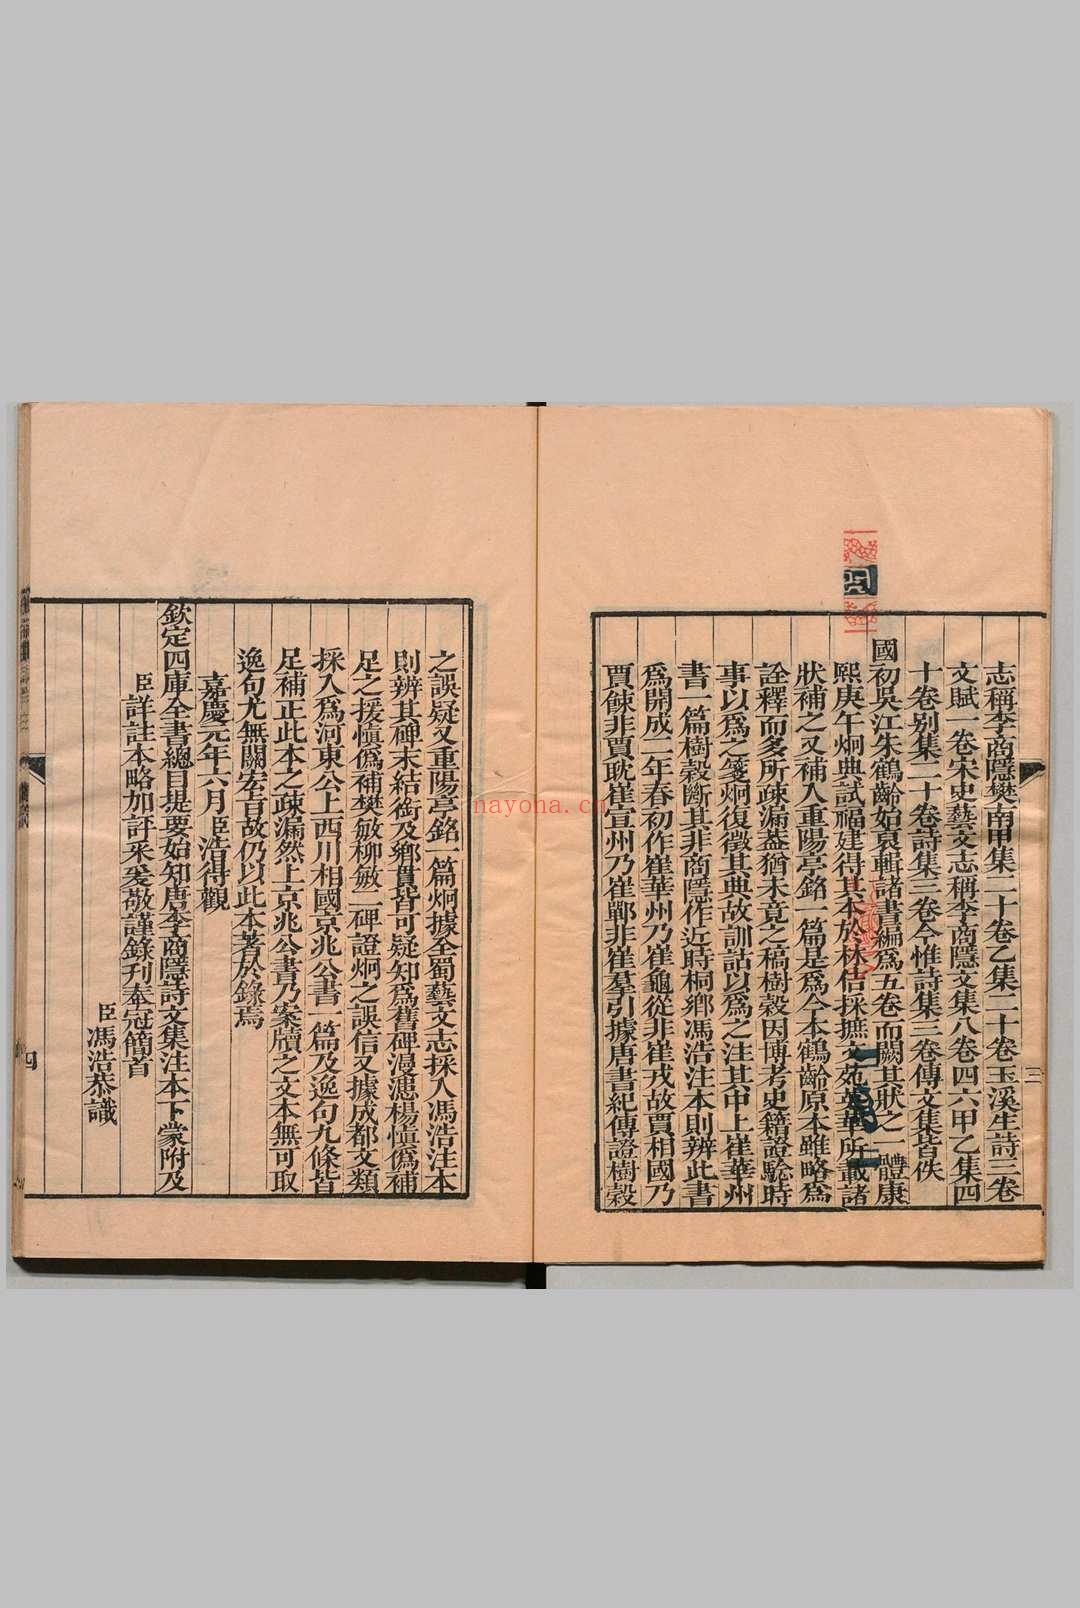 志稱李商隱樊南甲集二十卷乙集二十卷玉溪生詩三卷
文賦一卷宋史藝文志稱李商隱文集八卷四六甲乙集四
十卷別集二十卷詩集三卷今惟詩集三卷傳文集皆佚
國初吳江朱鶴齡始裒輯諸書編為五卷而闕其狀之一體康
熙庚午炯典試福建得其本於林佶採摭文苑英華所載諸
狀補之又補入重陽亭銘一篇是為今本鶴齡原本雖略為
詮釋而多所疎漏蓋猶未竟之稿樹穀因博考史籍證騐時
事以為之箋炯復徵其典故訓詁以為之注其中上崔華州
書一篇樹穀斷其非商隱作近時桐鄉馮浩注本則辨此書
為開成二年春初作崔華州乃崔龜從非崔戎故賈相國乃
賈餗非賈耽崔宣州乃崔鄲非崔羣引據唐書紀傳證樹穀
之誤疑又重陽亭銘一篇炯據全蜀藝文志採入馮浩注本
則辨其碑末結銜及鄉貫皆可疑知為舊碑漫漶楊慎偽補
足之援慎偽補樊敏柳敏二碑證炯之誤信又據成都文類
採入為河東公上西川相國京兆公書一篇及逸句九條皆
足補正此本之疎漏然上京兆公書乃案牘之文本無可取
逸句尤無關宏旨故仍以此本著於錄焉
嘉慶元年六月臣浩得觀
欽定四庫全書總目提要始知唐李商隱詩文集注本下蒙附及
臣詳註本略加評采爰敬謹錄刊奉冠簡首
臣馮浩恭識
三
四
nayona.cn